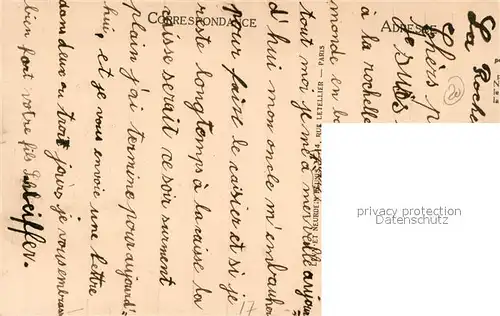 CORRESPONDANCE
ADRESSE
La Roche
Chers
Je suis
à la rochelle
monde en
tout moi je me à merveille aujour
d'hui mon oncle m'embauche
pour faire le caissier et si je
reste longtemps à la caisse la
caisse serait ce soir surment
plain j'ai terminé pour aujourd'
hui, et je vous envoie une lettre
dans deux ou trois jours, je vous embrasse
bien fort votre fils
ET NEURDEIN RUE LETELLIER — PARIS
17
privacy protection
Datenschutz